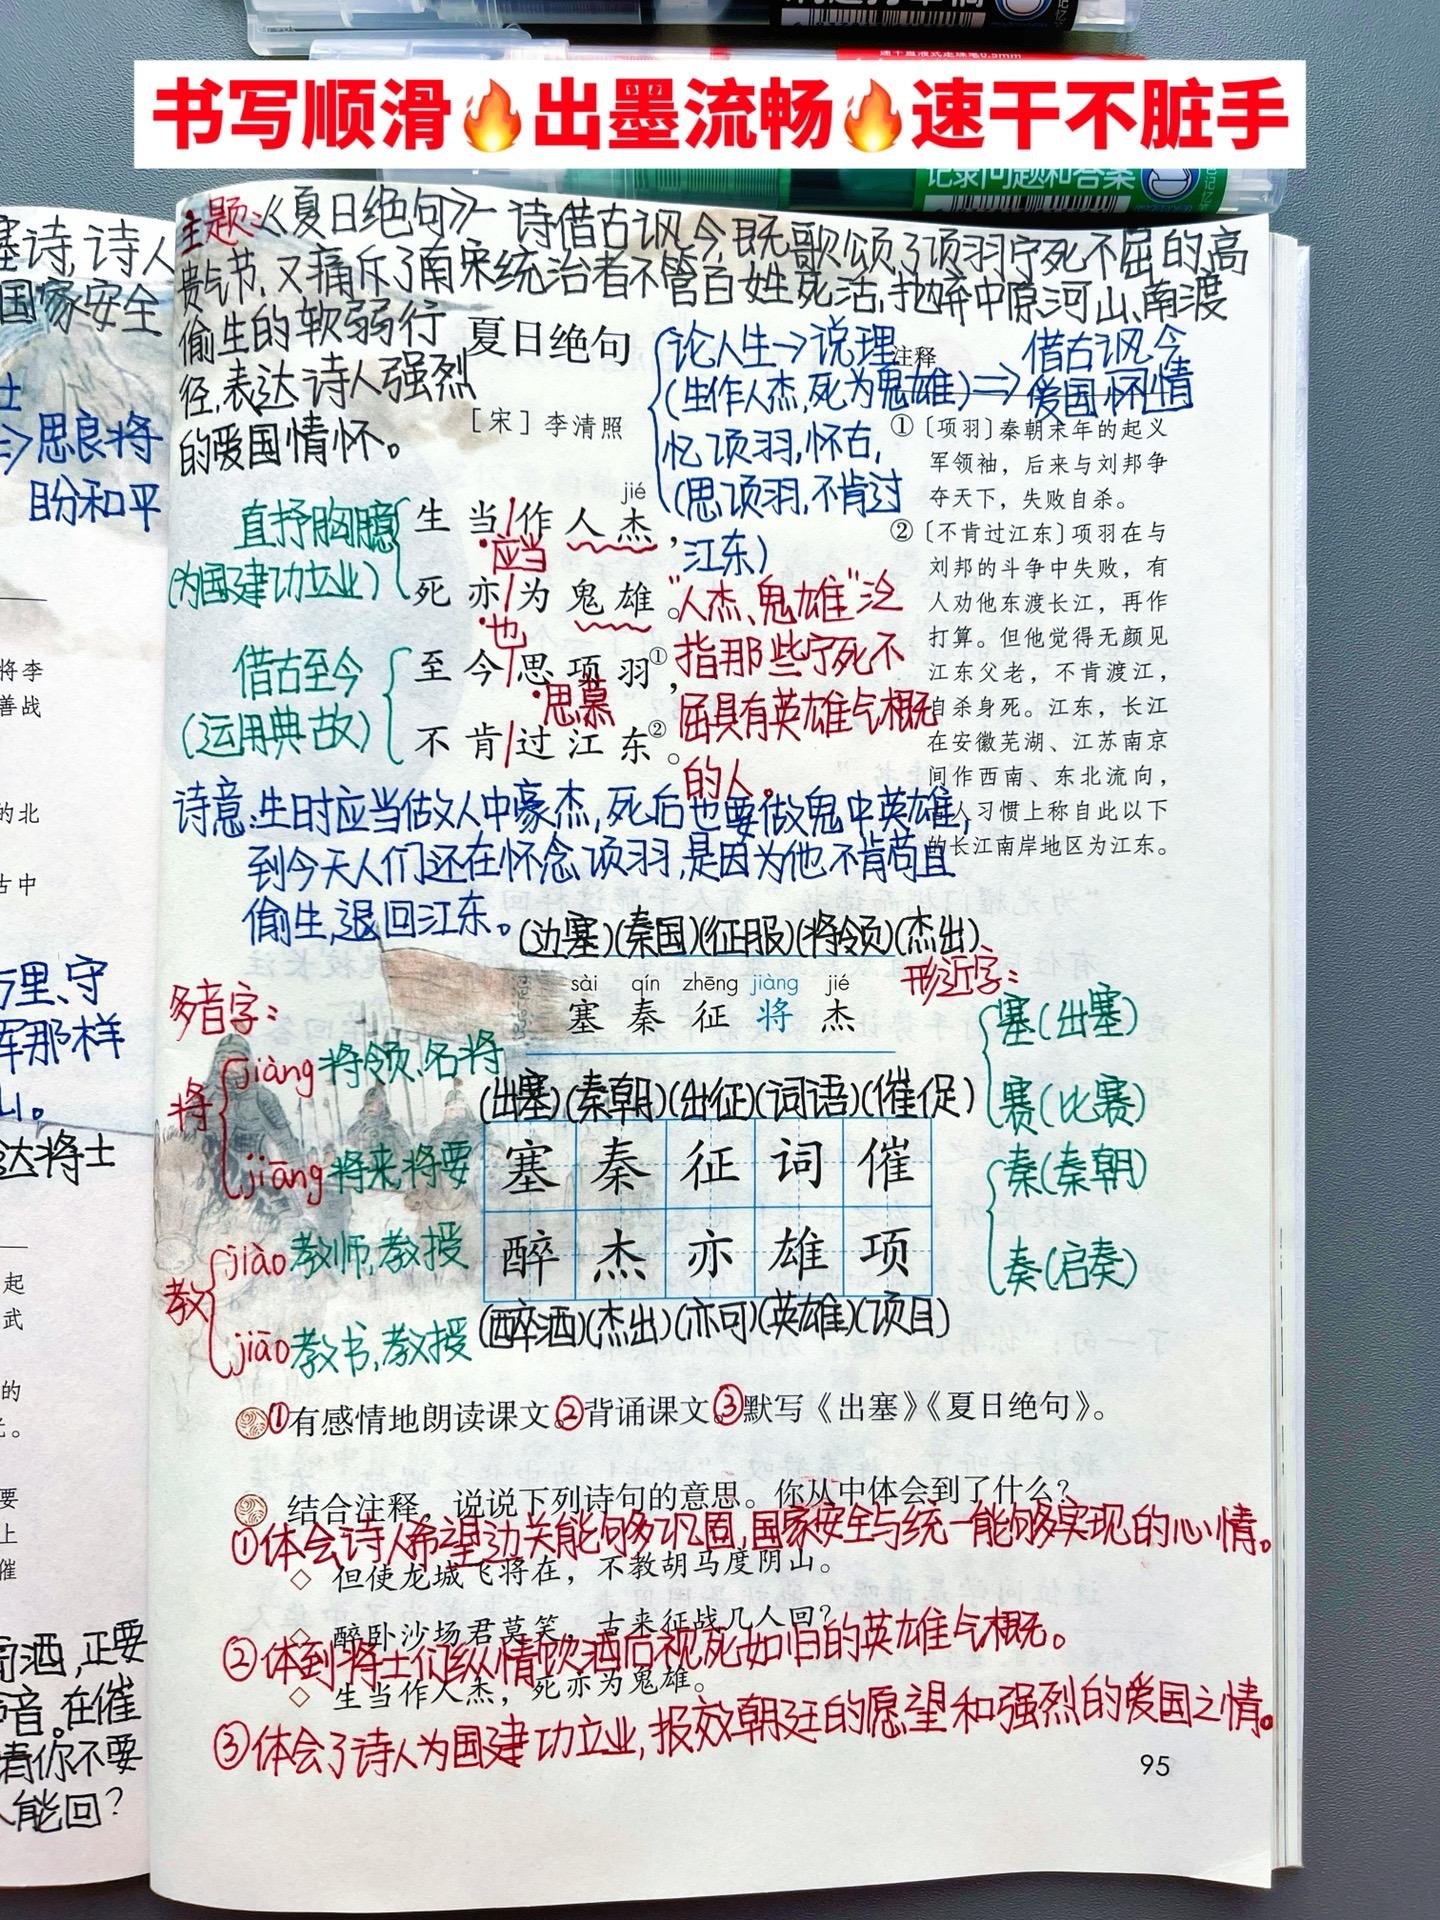 书写顺滑🔥出墨流畅🔥速干不脏手
记录问题和答案
塞诗,诗人
国家安全
士
=>思良将
盼和平
将李
善战
的北
古中
万里、守
军那样
山。
达将士
起
武
的
要
上
催
酒,正要
声音。在催
请你不要
人能回?
主题:《夏日绝句》一诗借古讽今,既歌颂了项羽宁死不屈的高
贵气节,又痛斥了南宋统治者不管百姓死活,抛弃中原河山、南渡
偷生的软弱行
径,表达诗人强烈
的爱国情怀。
夏日绝句
[宋] 李清照
论人生→说理
(生作人杰,死为鬼雄)=>借古讽今
爱国怀情
忆项羽,怀古,
(思项羽,不肯过
江东)
直抒胸臆
(为国建功立业)
jié
生当/作人杰,
应当
死亦/为鬼雄。
也
借古至今
(运用典故)
至今/思项羽①,
思慕
不肯/过江东②。
"人杰、鬼雄"泛
指那些宁死不
屈具有英雄气概
的人。
注释
①〔项羽〕秦朝末年的起义
军领袖,后来与刘邦争
夺天下,失败自杀。
②〔不肯过江东〕项羽在与
刘邦的斗争中失败,有
人劝他东渡长江,再作
打算。但他觉得无颜见
江东父老,不肯渡江,
自杀身死。江东,长江
在安徽芜湖、江苏南京
间作西南、东北流向,
人习惯上称自此以下
的长江南岸地区为江东。
诗意:生时应当做人中豪杰,死后也要做鬼中英雄,
到今天人们还在怀念项羽,是因为他不肯苟且
偷生,退回江东。
(边塞)(秦国)(征服)(将领)(杰出)
sài qín zhēng jiàng jié
塞 秦 征 将 杰
多音字:
将
jiàng将领、名将
jiāng将来,将要
教
jiào教师,教授
jiāo教书,教授
(出塞)(秦朝)(出征)(词语)(催促)
塞 秦 征 词 催
醉 杰 亦 雄 项
(醉酒)(杰出)(亦可)(英雄)(项目)
形近字:
塞(出塞)
赛(比赛)
秦(秦朝)
奏(启奏)
①有感情地朗读课文。②背诵课文。③默写《出塞》《夏日绝句》。
结合注释,说说下列诗句的意思。你从中体会到了什么?
①体会诗人希望边关能够多巩固,国家安全与统一能够多实现的心情。
◇ 但使龙城飞将在,不教胡马度阴山。
◇ 醉卧沙场君莫笑,古来征战几人回?
②体到将士们纵情饮酒后视死如归的英雄气概。
◇ 生当作人杰,死亦为鬼雄。
③体会了诗人为国建功立业,报效朝廷的愿望和强烈的爱国之情。
95